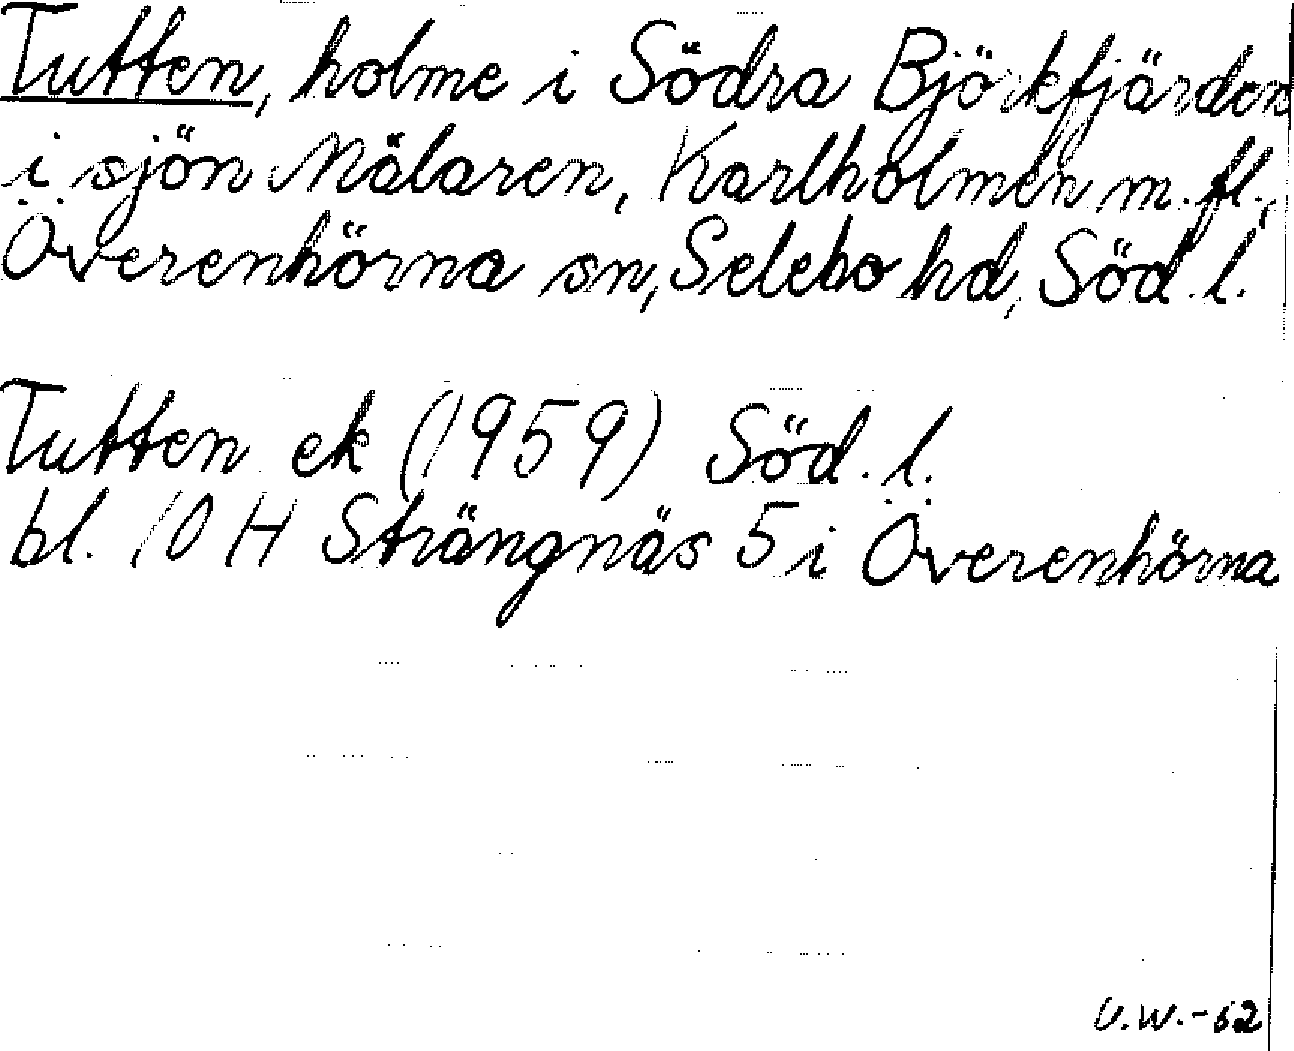 Tutten, holme i Södra Björkfjärden
i sjön Mälaren, Karlholmen m. fl.,
Överenhörna sn, Selebo hd, Söd. l.
Tutten ek (1959) Söd. l.
bl. 10 H Strängnäs 5 i Överenhörna
U.W.-62